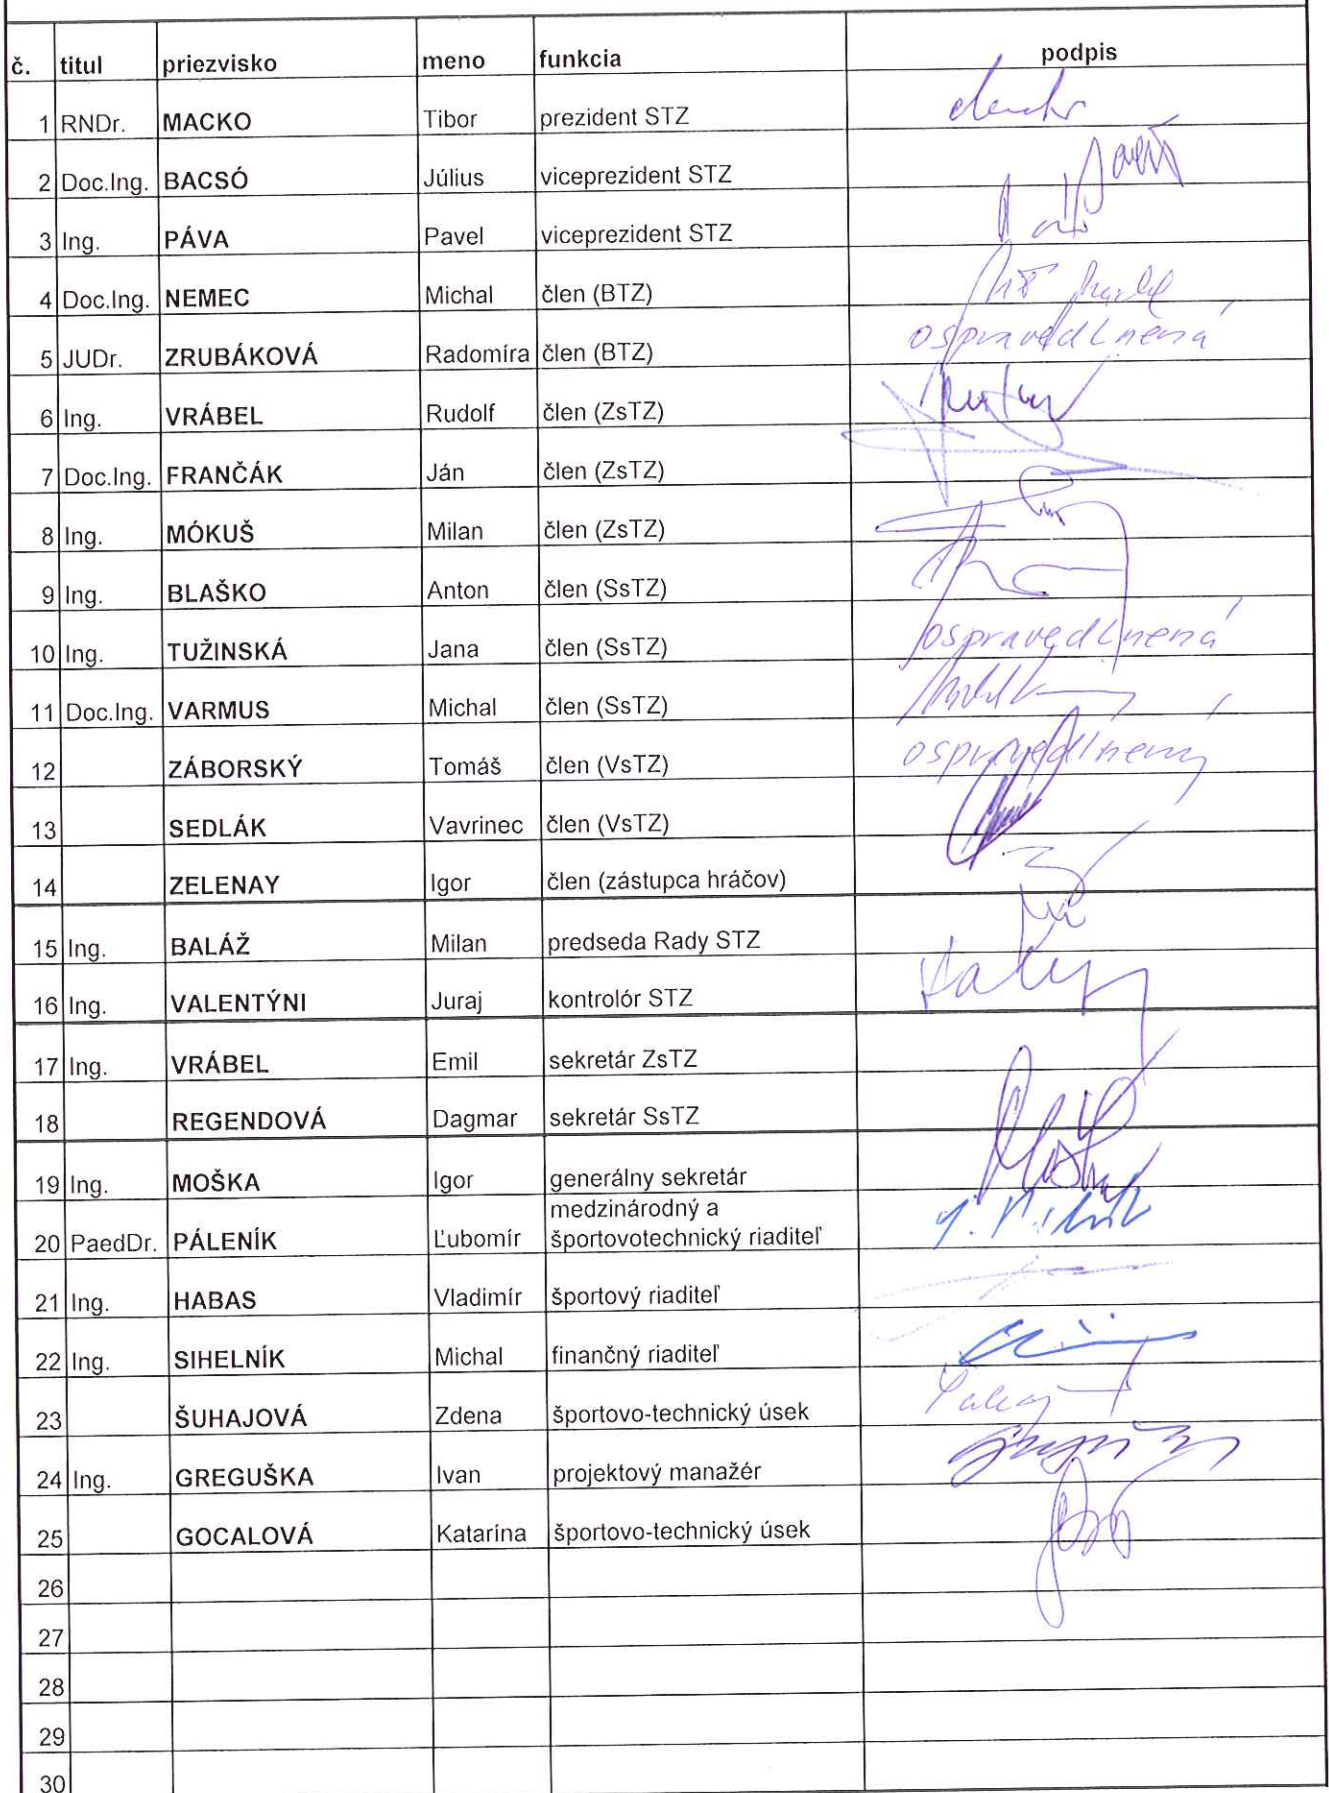 č. titul priezvisko meno funkcia podpis
1 RNDr. MACKO Tibor prezident STZ
2 Doc.Ing. BACSÓ Július viceprezident STZ
3 Ing. PÁVA Pavel viceprezident STZ
4 Doc.Ing. NEMEC Michal člen (BTZ)
5 JUDr. ZRUBÁKOVÁ Radomíra člen (BTZ) ospravedlnená
6 Ing. VRÁBEL Rudolf člen (ZsTZ)
7 Doc.Ing. FRANČÁK Ján člen (ZsTZ)
8 Ing. MÓKUŠ Milan člen (ZsTZ)
9 Ing. BLAŠKO Anton člen (SsTZ)
10 Ing. TUŽINSKÁ Jana člen (SsTZ) ospravedlnená
11 Doc.Ing. VARMUS Michal člen (SsTZ)
12 ZÁBORSKÝ Tomáš člen (VsTZ) ospravedlnený
13 SEDLÁK Vavrinec člen (VsTZ)
14 ZELENAY Igor člen (zástupca hráčov)
15 Ing. BALÁŽ Milan predseda Rady STZ
16 Ing. VALENTÝNI Juraj kontrolór STZ
17 Ing. VRÁBEL Emil sekretár ZsTZ
18 REGENDOVÁ Dagmar sekretár SsTZ
19 Ing. MOŠKA Igor generálny sekretár
medzinárodný a
20 PaedDr. PÁLENÍK Ľubomír športovotechnický riaditeľ
21 Ing. HABAS Vladimír športový riaditeľ
22 Ing. SIHELNÍK Michal finančný riaditeľ
23 ŠUHAJOVÁ Zdena športovo-technický úsek
24 Ing. GREGUŠKA Ivan projektový manažér
25 GOCALOVÁ Katarína športovo-technický úsek
26
27
28
29
30